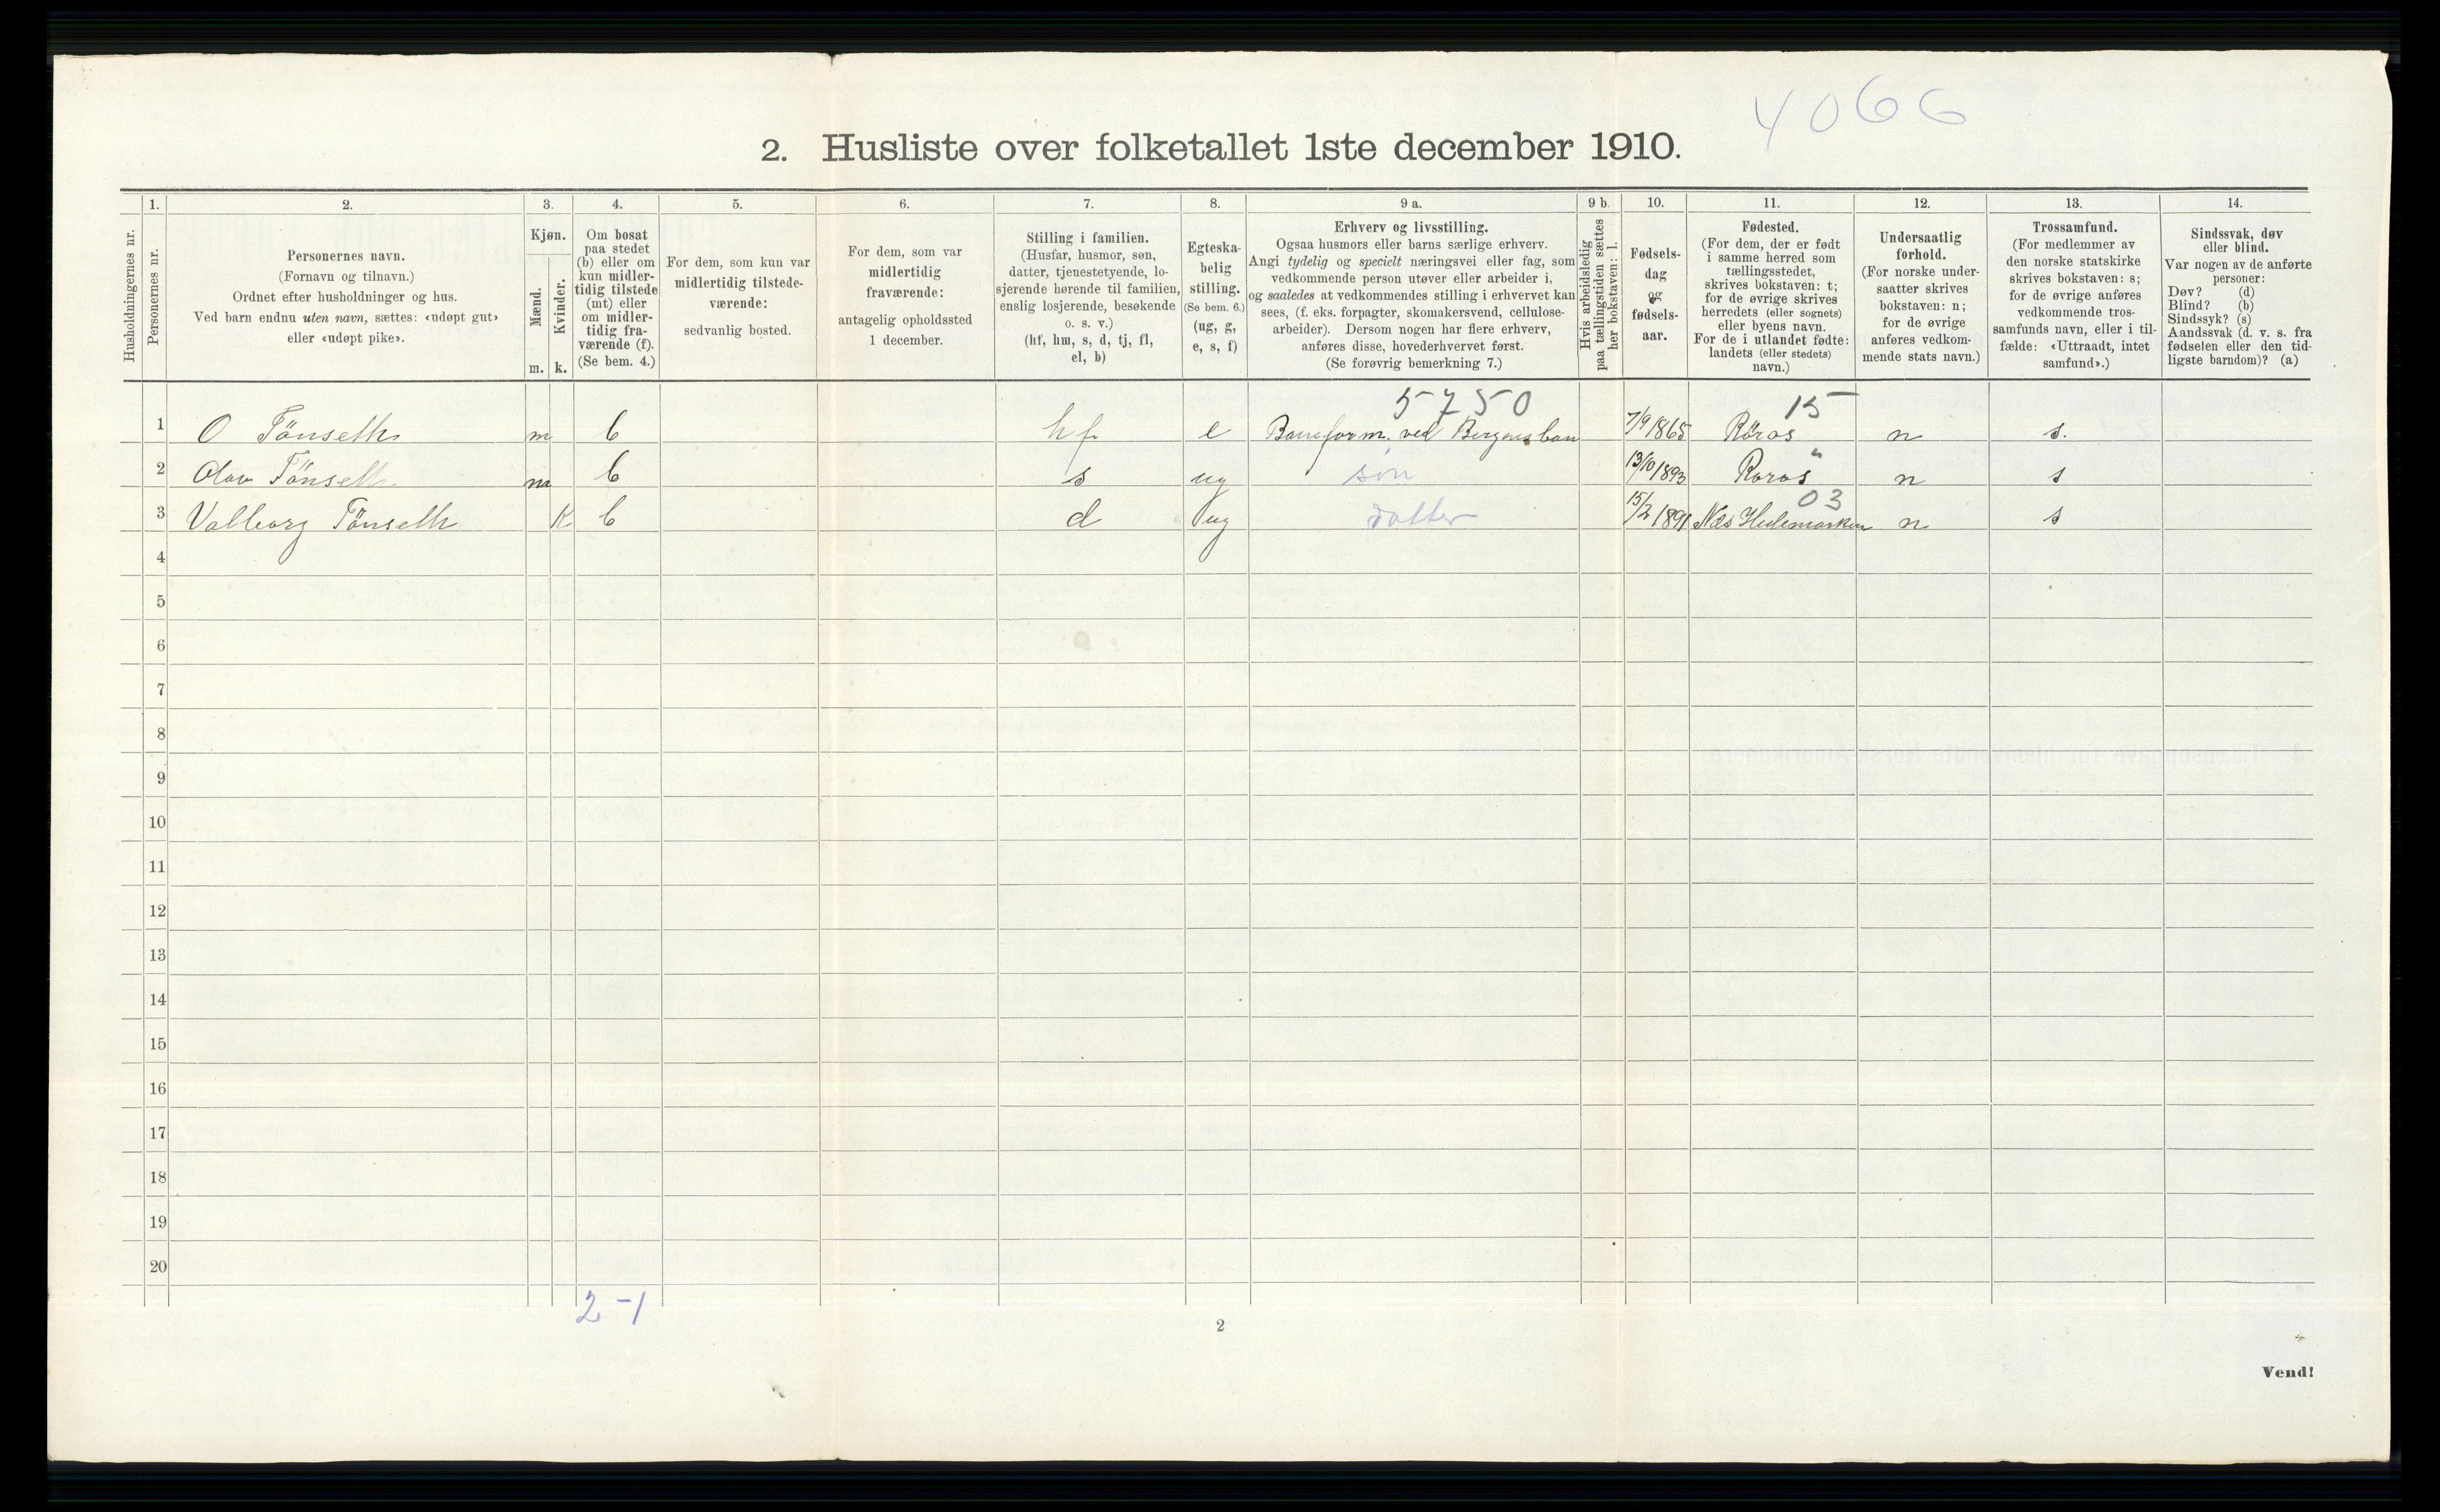 4066
2. Husliste over folketallet 1ste december 1910.
Husholdningernes nr.
1.
Personernes nr.
2.
Personernes navn.
(Fornavn og tilnavn.)
Ordnet efter husholdninger og hus.
Ved barn endnu uten navn, sættes: «udøpt gut»
eller «udøpt pike».
3.
Kjøn.
Mænd.
Kvinder.
m. k.
4.
Om bosat
paa stedet
(b) eller om
kun midler-
tidig tilstede
(mt) eller
om midler-
tidig fra-
værende (f).
(Se bem. 4.)
5.
For dem, som kun var
midlertidig tilstede-
værende:
sedvanlig bosted.
6.
For dem, som var
midlertidig
fraværende:
antagelig opholdssted
1 december.
7.
Stilling i familien.
(Husfar, husmor, søn,
datter, tjenestetyende, lo-
sjerende hørende til familien,
enslig losjerende, besøkende
o. s. v.)
(hf, hm, s, d, tj, fl,
el, b)
8.
Egteska-
belig
stilling.
(Se bem. 6.)
(ug, g,
e, s, f)
9 a.
Erhverv og livsstilling.
Ogsaa husmors eller barns særlige erhverv.
Angi tydelig og specielt næringsvei eller fag, som
vedkommende person utøver eller arbeider i,
og saaledes at vedkommendes stilling i erhvervet kan
sees, (f. eks. forpagter, skomakersvend, cellulose-
arbeider). Dersom nogen har flere erhverv,
anføres disse, hovederhvervet først.
(Se forøvrig bemerkning 7.)
9 b.
Hvis arbeidsledig
paa tællingstiden sættes
her bokstaven: l.
10.
Fødsels-
dag
og
fødsels-
aar.
11.
Fødested.
(For dem, der er født
i samme herred som
tællingsstedet,
skrives bokstaven: t;
for de øvrige skrives
herredets (eller sognets)
eller byens navn.
For de i utlandet fødte:
landets (eller stedets)
navn.)
12.
Undersaatlig
forhold.
(For norske under-
saatter skrives
bokstaven: n;
for de øvrige
anføres vedkom-
mende stats navn.)
13.
Trossamfund.
(For medlemmer av
den norske statskirke
skrives bokstaven: s;
for de øvrige anføres
vedkommende tros-
samfunds navn, eller i til-
fælde: «Uttraadt, intet
samfund».)
14.
Sindssvak, døv
eller blind.
Var nogen av de anførte
personer:
Døv? (d)
Blind? (b)
Sindssyk? (s)
Aandssvak (d. v. s. fra
fødselen eller den tid-
ligste barndom)? (a)
5750 15
1 O Tönseth m b hf e Baneform. ved Bergensban 7/9 1865 Röros n s.
2 Olav Tönseth m b s ug søn 13/10 1893 Roros " n s
03
3 Valborg Tönseth K b d ug datter 15/2 1891 Næs Hedemarken n s
4
5
6
7
8
9
10
11
12
13
14
15
16
17
18
19
20
2-1
2
Vend!